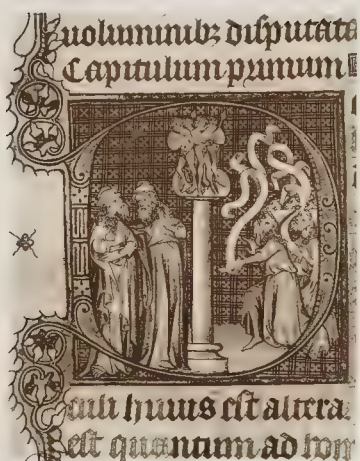 uoluminibz disputata
Capitulum primum
culi huius est altera
est quantum ad hom